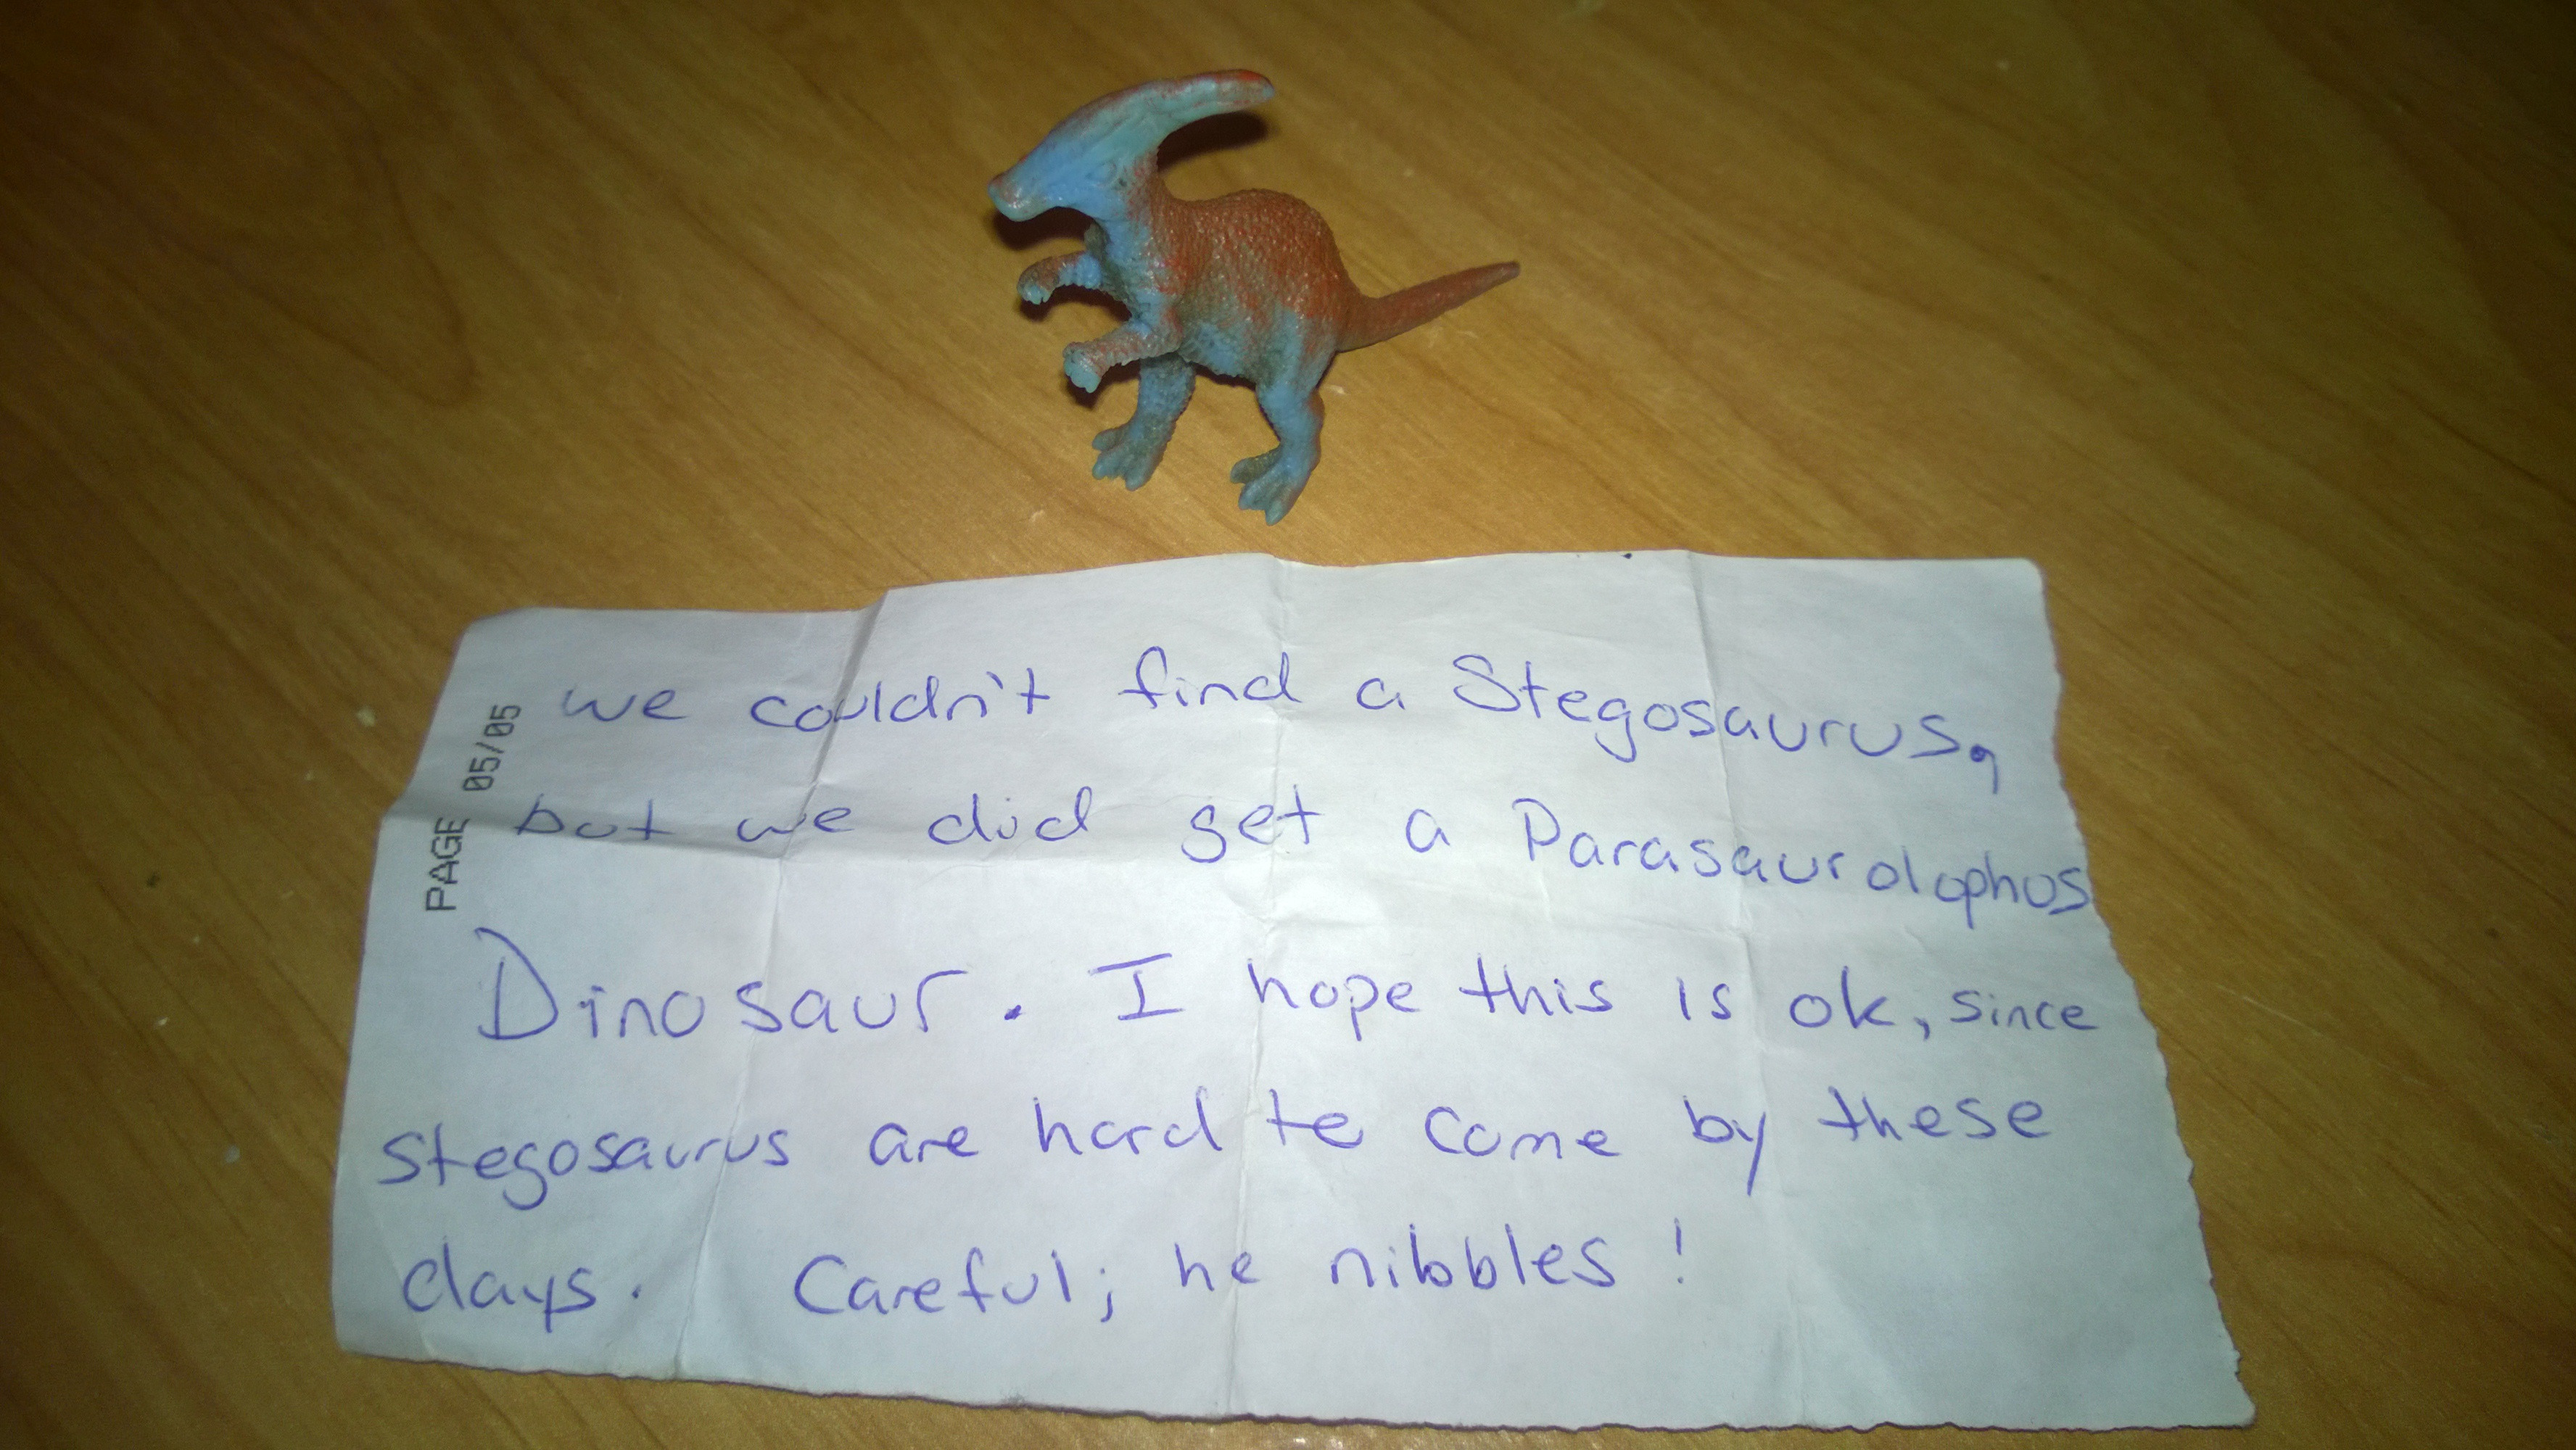 PAGE 05/05
we couldn't find a Stegosaurus,
but we did get a Parasaurolophus
Dinosaur. I hope this is ok, since
Stegosaurus are hard to come by these
days. Careful; he nibbles!